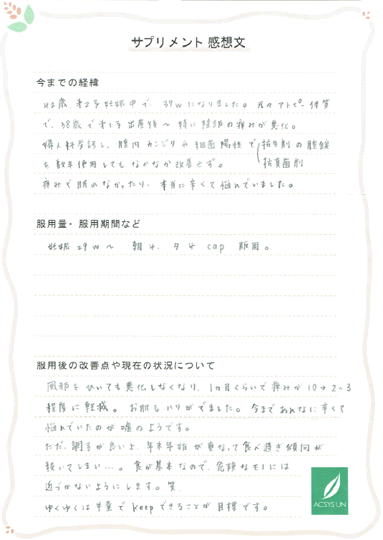 サプリメント 感想文
今までの経緯
42歳、第2子妊娠中で、37wになりました。元々アトピー体質
で、38歳で第1子出産後〜特に陰部の痒みが悪化。
婦人科受診し、膣内カンジタや細菌陽性で（抗生剤の膣錠
を数年使用してもなかなか改善せず。 抗真菌剤
痒みで眠れなかったり、本当に辛くて悩んでいました。
服用量・服用期間など
妊娠29w〜 朝4、夕4 cap 服用。
服用後の改善点や現在の状況について
風邪をひいても悪化しなくなり、1ヵ月くらいで痒みが10→2〜3
程度に軽減。お肌もハリがでました。今まであんなに辛くて
悩んでいたのが嘘のようです。
ただ、調子が良いと、年末年始が重なって食べ過ぎ傾向が
続いてしまい…。食が基本なので、危険なモノには
近づかないようにします。笑
ゆくゆくは半量でkeepできることが目標です。
ACSYS UN